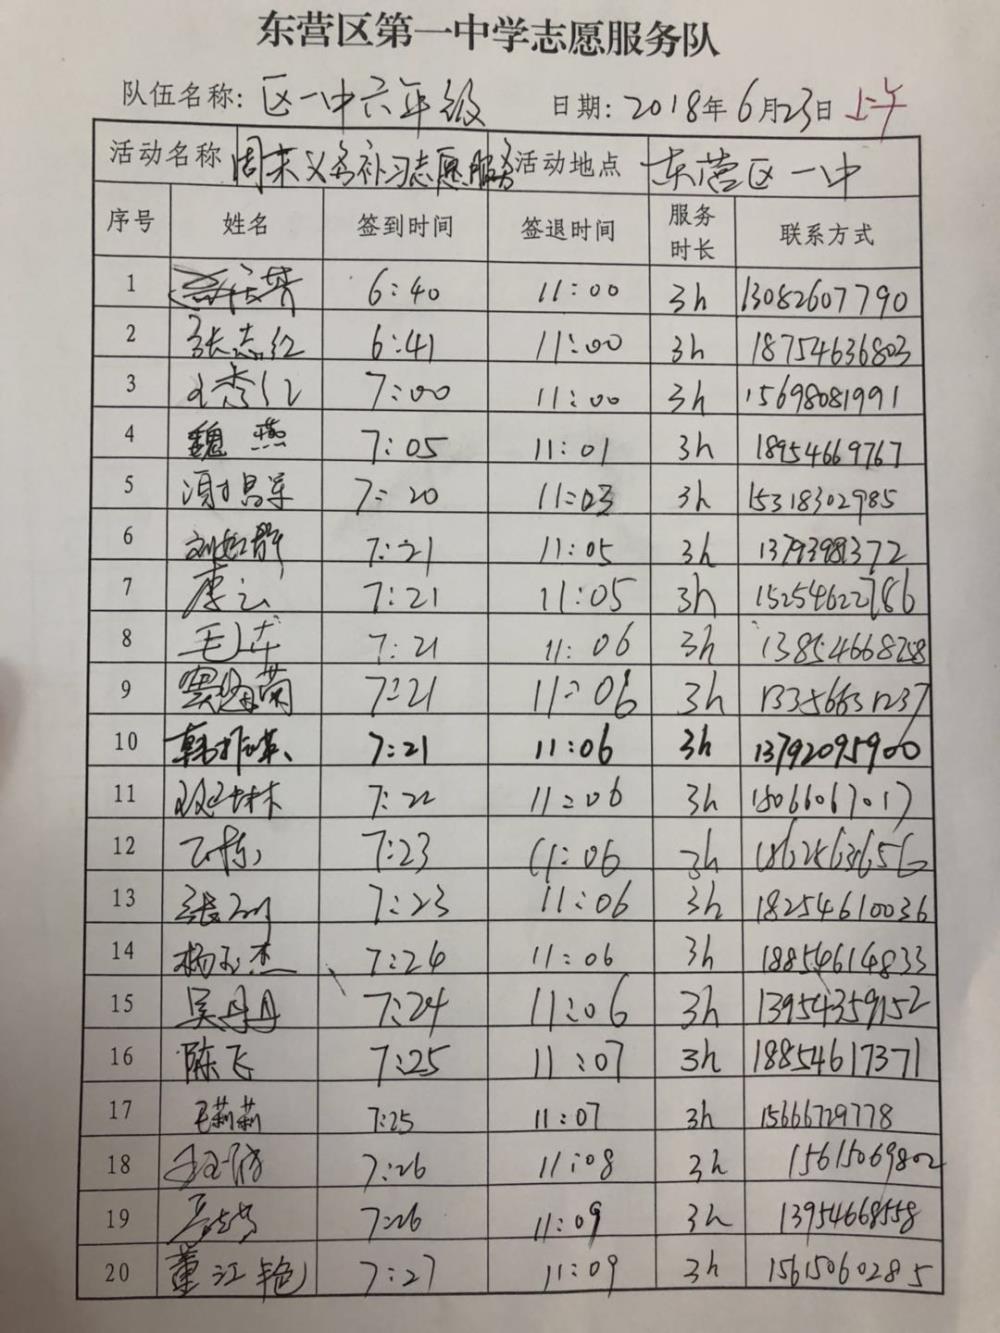 东营区第一中学志愿服务队
队伍名称: 区一中六年级 日期: 2018年6月23日 上午
活动名称 周末义务补习志愿服务 活动地点 东营区一中
序号 姓名 签到时间 签退时间 服务时长 联系方式
1 6:40 11:00 3h 13082607790
2 张志红 6:41 11:00 3h 18754636803
3 7:00 11:00 3h 15698081991
4 魏燕 7:05 11:01 3h 18954669767
5 7:20 11:03 3h 15318302985
6 7:21 11:05 3h
7 李云 7:21 11:05 3h 15254622786
8 7:21 11:06 3h 13854668258
9 7:21 11:06 3h
10 7:21 11:06 3h 13792095900
11 7:22 11:06 3h
12 7:23 11:06 3h
13 7:23 11:06 3h 18254610036
14 杨玉杰 7:24 11:06 3h 18854614833
15 吴丹丹 7:24 11:06 3h 13954359152
16 陈飞 7:25 11:07 3h 18854617371
17 王莉莉 7:25 11:07 3h 15666729778
18 7:26 11:08 3h 15615069802
19 7:26 11:09 3h 13954668558
20 董江艳 7:27 11:09 3h 15615060285